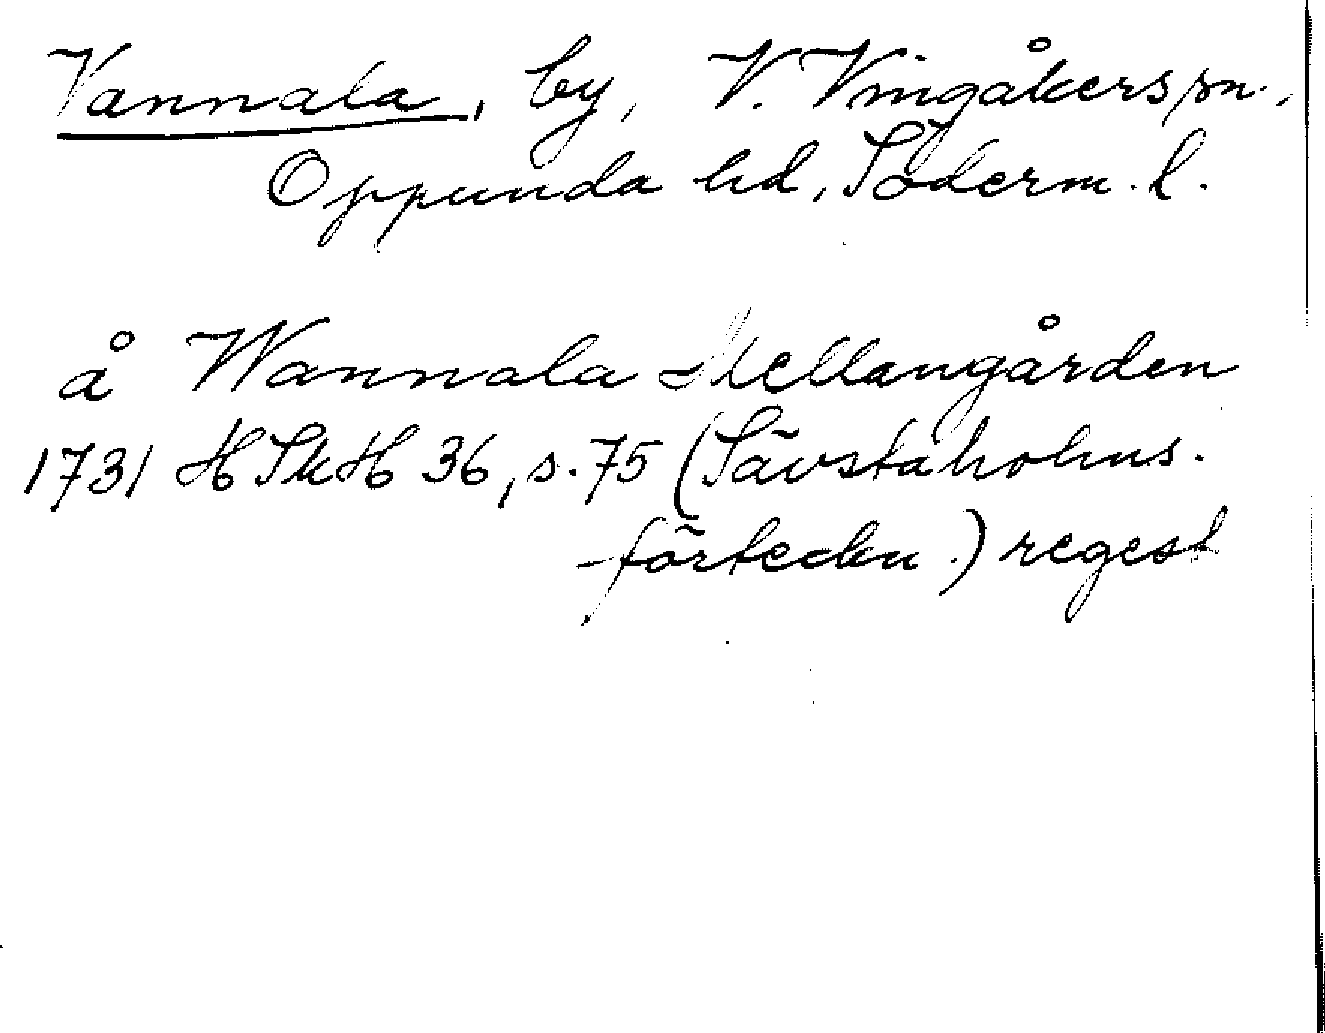 Vannala, by, V. Vingåkers sn.,
Oppunda hd, Söderm. l.
å Wannala Mellangården
1731 HSkH 36, s. 75 (Sävstaholms-
förteckn.) regest